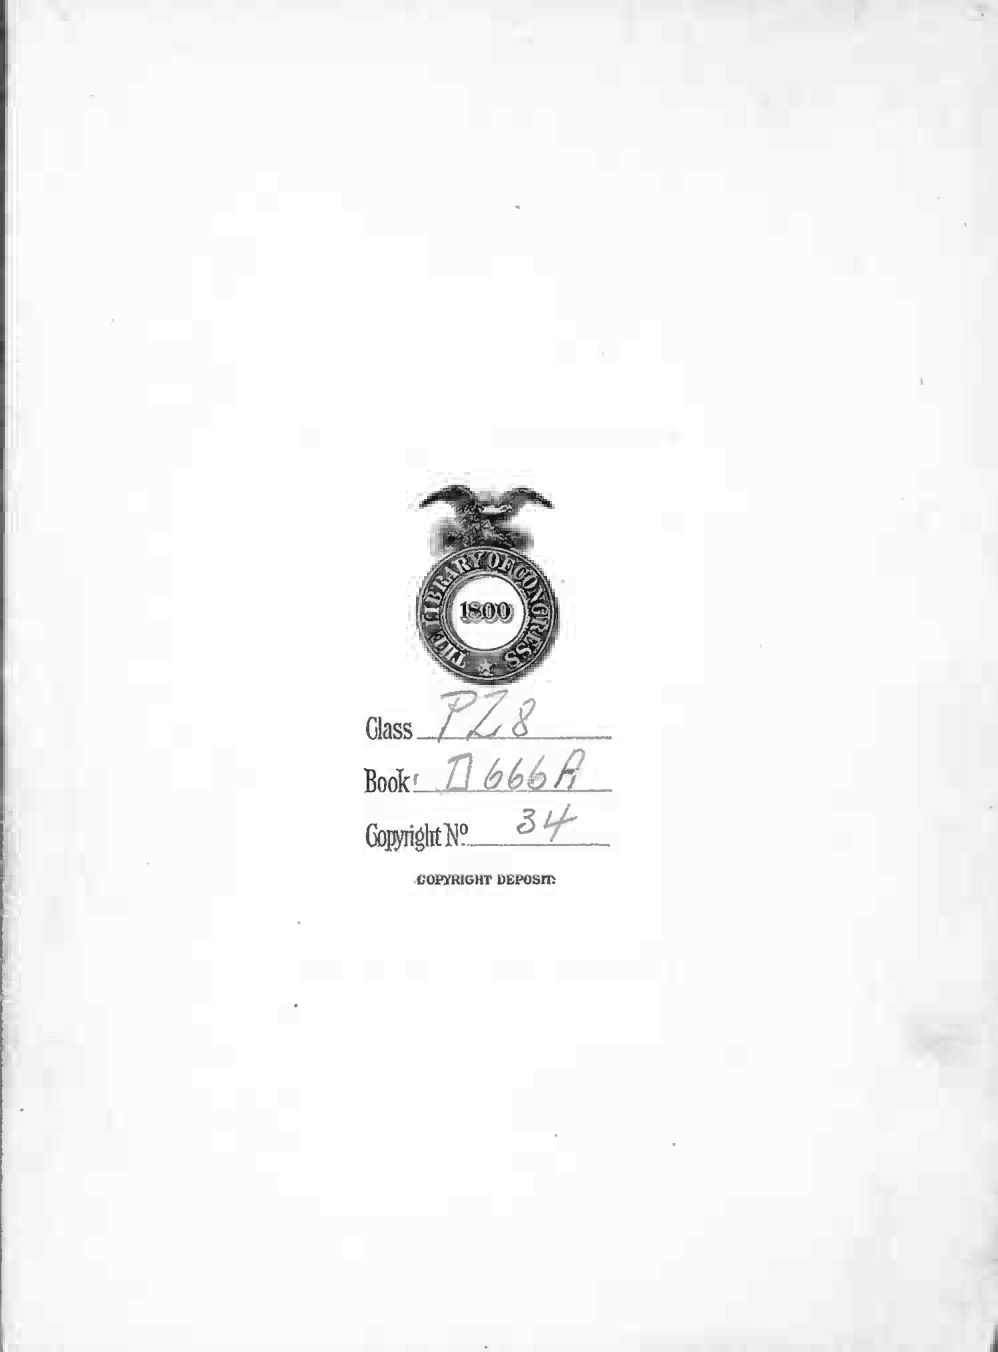 THE LIBRARY OF CONGRESS
1800
Class PZ8
Book D666A
Copyright No 34
COPYRIGHT DEPOSIT.